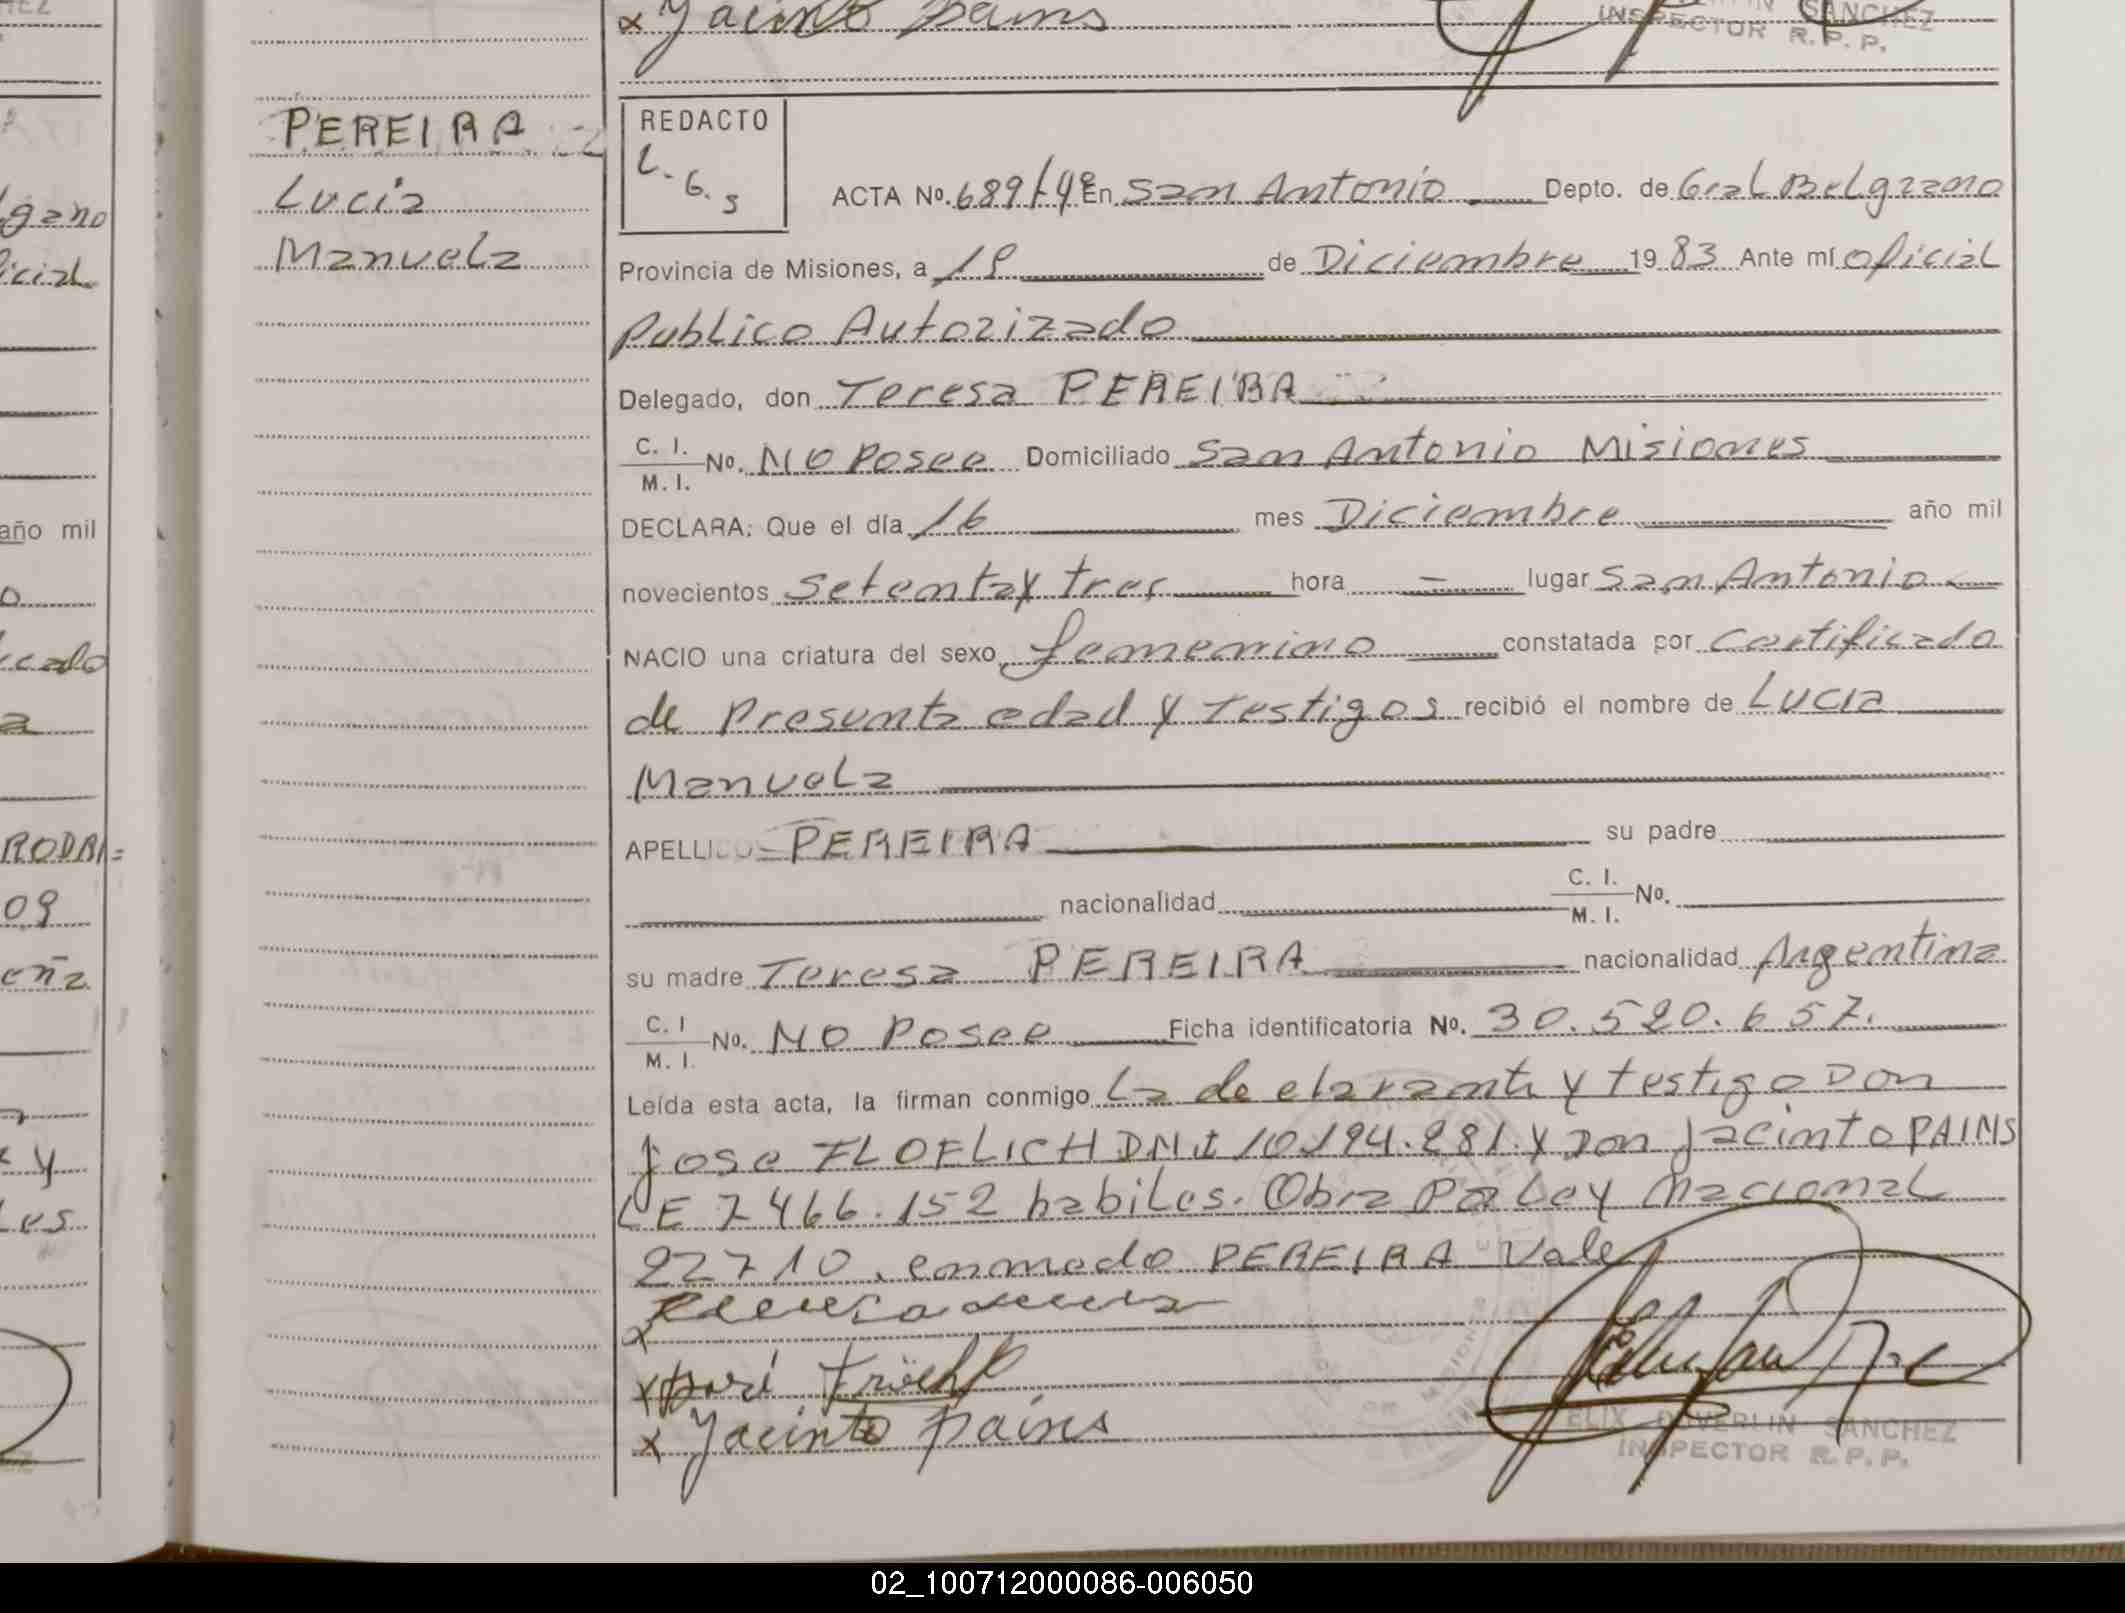 Jacinto pains
SANCHEZ
INSPECTOR R. P. P.
PEREIRA
Lucia
Manuela
REDACTO
L. G. S
ACTA No. 689 En San Antonio Depto. de Gral Belgrano
Provincia de Misiones, a 19 de Diciembre 19 83 Ante mí oficial
Publico Autorizado
Delegado, don Teresa PEREIRA
C. I.
M. I. No. NO Posee Domiciliado San Antonio Misiones
DECLARA: Que el día 16 mes Diciembre año mil
novecientos Setenta y tres hora = lugar San Antonio
NACIO una criatura del sexo femenino constatada por Certificado
de Presunta edad y Testigos recibió el nombre de Lucia
Manuela
APELLIDO PEREIRA su padre
nacionalidad C. I.
M. I. No.
su madre Teresa PEREIRA nacionalidad Argentina
C. I
M. I. No. NO Posee Ficha identificatoria No. 30.520.657.
Leída esta acta, la firman conmigo La declarante y testigo Don
Jose FLOELICH DNI 10.194.281. y Don Jacinto PAINS
LE 7466.152 habiles. Obra Por Ley Nacional
22710. enmedo PEREIRA Vale
x
x José
x Jacinto pains
ELIX DUVERLIN SANCHEZ
INSPECTOR R. P. P.
gano
icial
año mil
o
cado
a
RODRI=
09
eña
y
Les
02_100712000086-006050